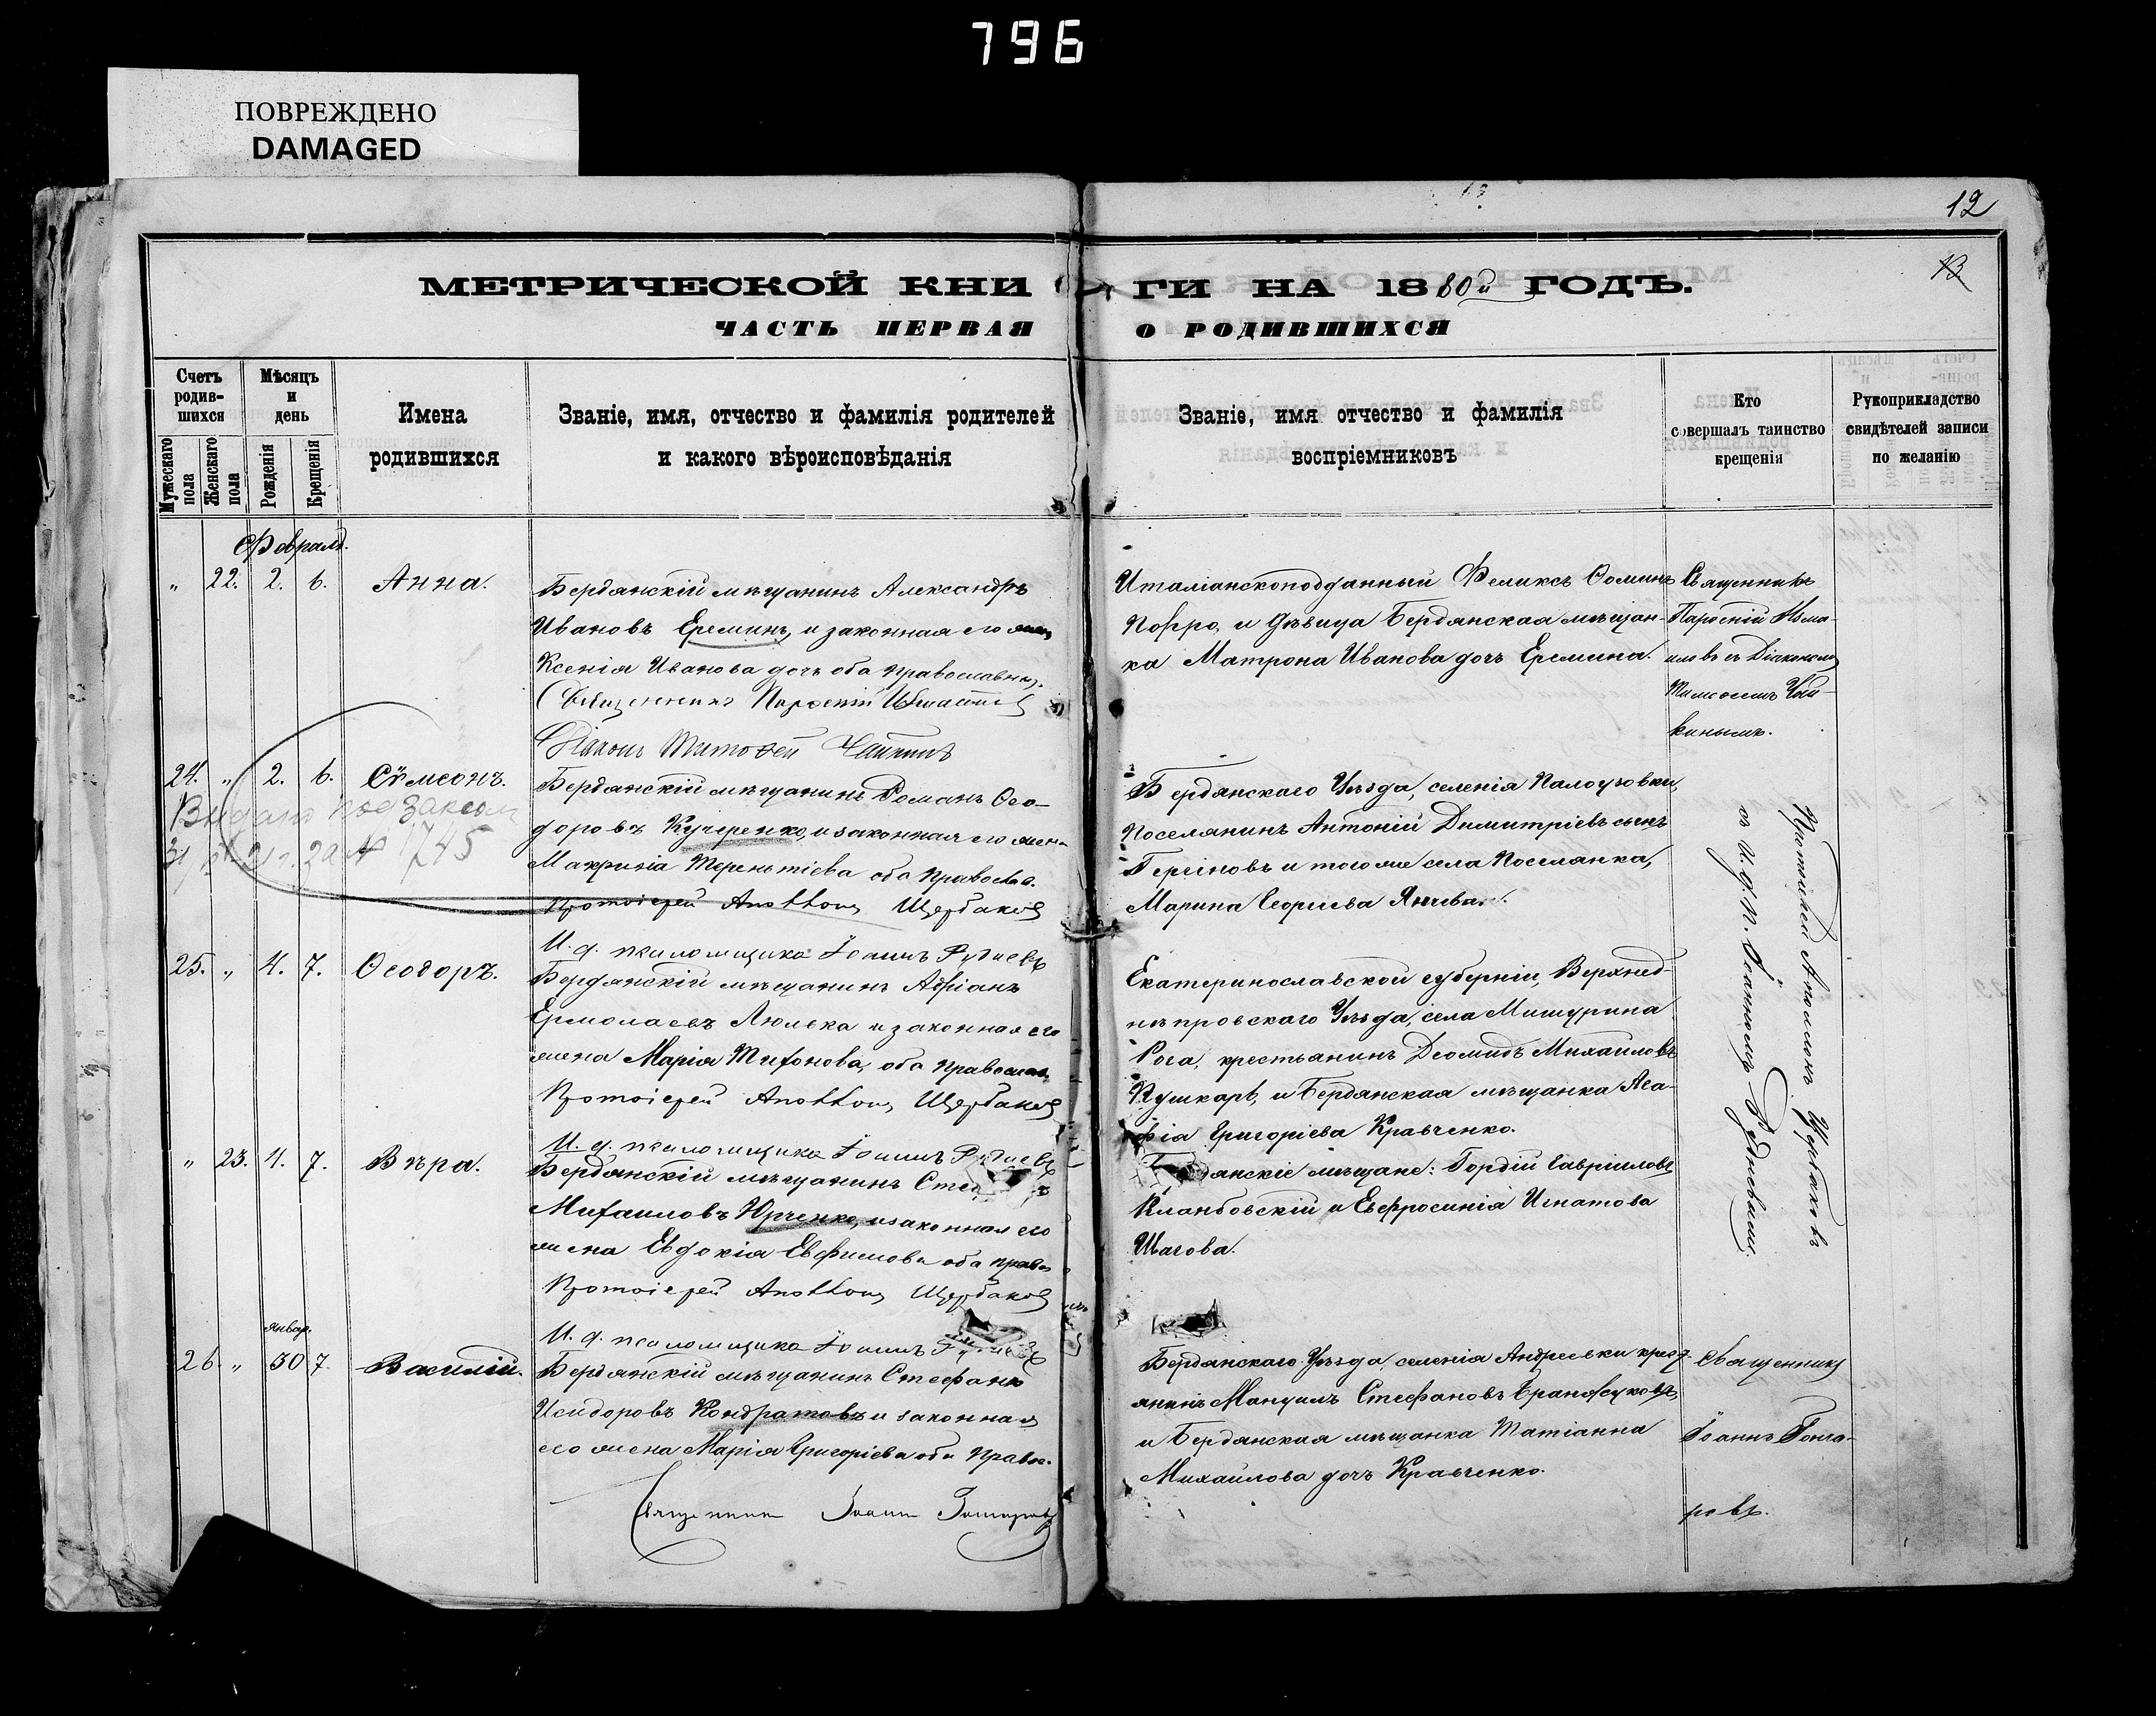 796
ПОВРЕЖДЕНО
DAMAGED
12
13
МЕТРИЧЕСКОЙ КНИ
ГИ НА 1880й ГОДЪ.
ЧАСТЬ ПЕРВАЯ
О РОДИВШИХСЯ
Счетъ родив-шихся
Мужескаго пола
Женскаго пола
Мѣсяцъ и день
Рожденія
Крещенія
Имена родившихся
Званіе, имя, отчество и фамилія родителей
и какого вѣроисповѣданія
Званіе, имя отчество и фамилія
воспріемниковъ
Кто
совершалъ таинство
крещенія
Рукоприкладство
свидѣтелей записи
по желанію
Февраль.
" 22. 2. 6. Анна.
Бердянскій мѣщанинъ Александръ
Ивановъ Ереминъ, и законная его жена
Ксенія Иванова дочь оба православны.
Священникъ
Діаконъ Тимофей Чайкинъ
Италіанскоподданный Феликсъ Ѳоминъ
Поффо, и дѣвица Бердянская мѣщан-
ка Матрона Иванова дочь Еремина.
Священникъ
Парѳеній
съ Діакономъ
Чай-
кинымъ.
24. " 2. 6. Сѵмеонъ.
Бердянскій мѣщанинъ Романъ Ѳео-
доровъ Кучеренко, и законная его жена
Макринія Терентіева оба Правосла.
Протоіерей Аполлонъ Щербаковъ
И. д. псаломщика Іоаннъ Рудневъ
1745
Бердянскаго Уѣзда, селенія Палоузовки,
Поселянинъ Антоній Димитріевъ сынъ
Гергіновъ и того же села Поселянка,
Марина Георгіева Янчева.
Протоіерей Аполлонъ Щербаковъ
съ И. д. П. Іоанномъ Рудневымъ.
25. " 4. 7. Ѳеодоръ.
Бердянскій мѣщанинъ Адріанъ
Ермолаевъ Люлька и законная его
жена Марія Тихонова, оба Правосла.
Протоіерей Аполлонъ Щербаковъ
И. д. псаломщика Іоаннъ Рудневъ
Екатеринославской губерніи, Верхнед-
нѣпровскаго Уѣзда, села Мишурина
Рога, крестьянинъ Діомидъ Михаиловъ
Пушкарь, и Бердянская мѣщанка Ага-
фія Григоріева Кравченко.
" 23. 4. 7. Вѣра.
Бердянскій мѣщанинъ
Михаиловъ Юрченко, и законная его
жена Евдокія Евфимова оба право
Протоіерей Аполлонъ Щербаковъ
И. д. псаломщика Іоаннъ
мѣщане: Гордій Гавріиловъ
и Евфросинія Игнатова
Шагова.
Январ.
26 " 30 7. Василій.
Бердянскій мѣщанинъ Стефанъ
Исидоровъ Кондратовъ и законная
его жена Марія Григоріева оба Право.
Священникъ Іоаннъ Гончаровъ
Бердянскаго Уѣзда, селенія Андреевки крест-
янинъ Мануилъ Стефановъ
и Бердянская мѣщанка Татіанна
Михаилова дочь Кравченко.
Священникъ
Іоаннъ Гонча-
ровъ.